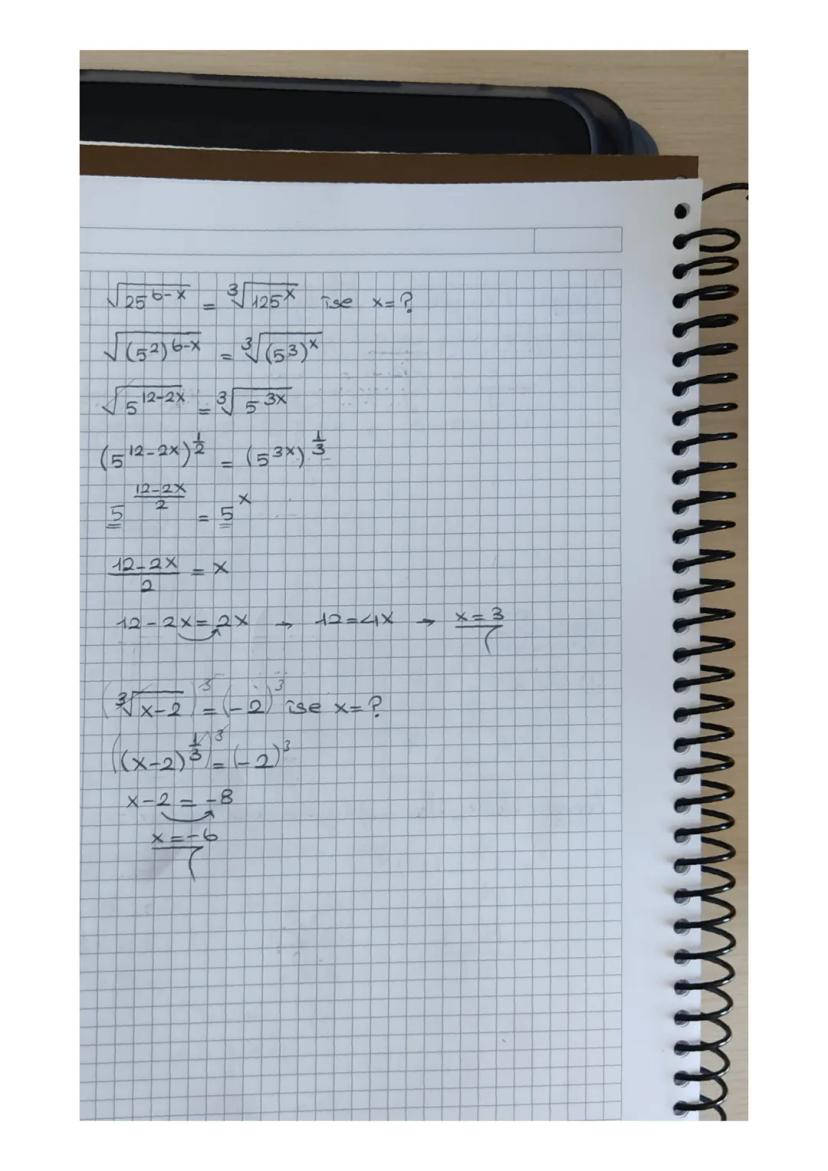 √(25^(6-x)) = ∛(125^x) ise x=?
√((5²)^(6-x)) = ∛((5³)^x)
√(5^(12-2x)) = ∛(5^(3x))
(5^(12-2x))^(1/2) = (5^(3x))^(1/3)
5^((12-2x)/2) = 5^x
(12-2x)/2 = x
12-2x=2x → 12=4x → x=3
(∛(x-2))³=(-2)³ ise x=?
((x-2)^(1/3))³=(-2)³
x-2=-8
x=-6